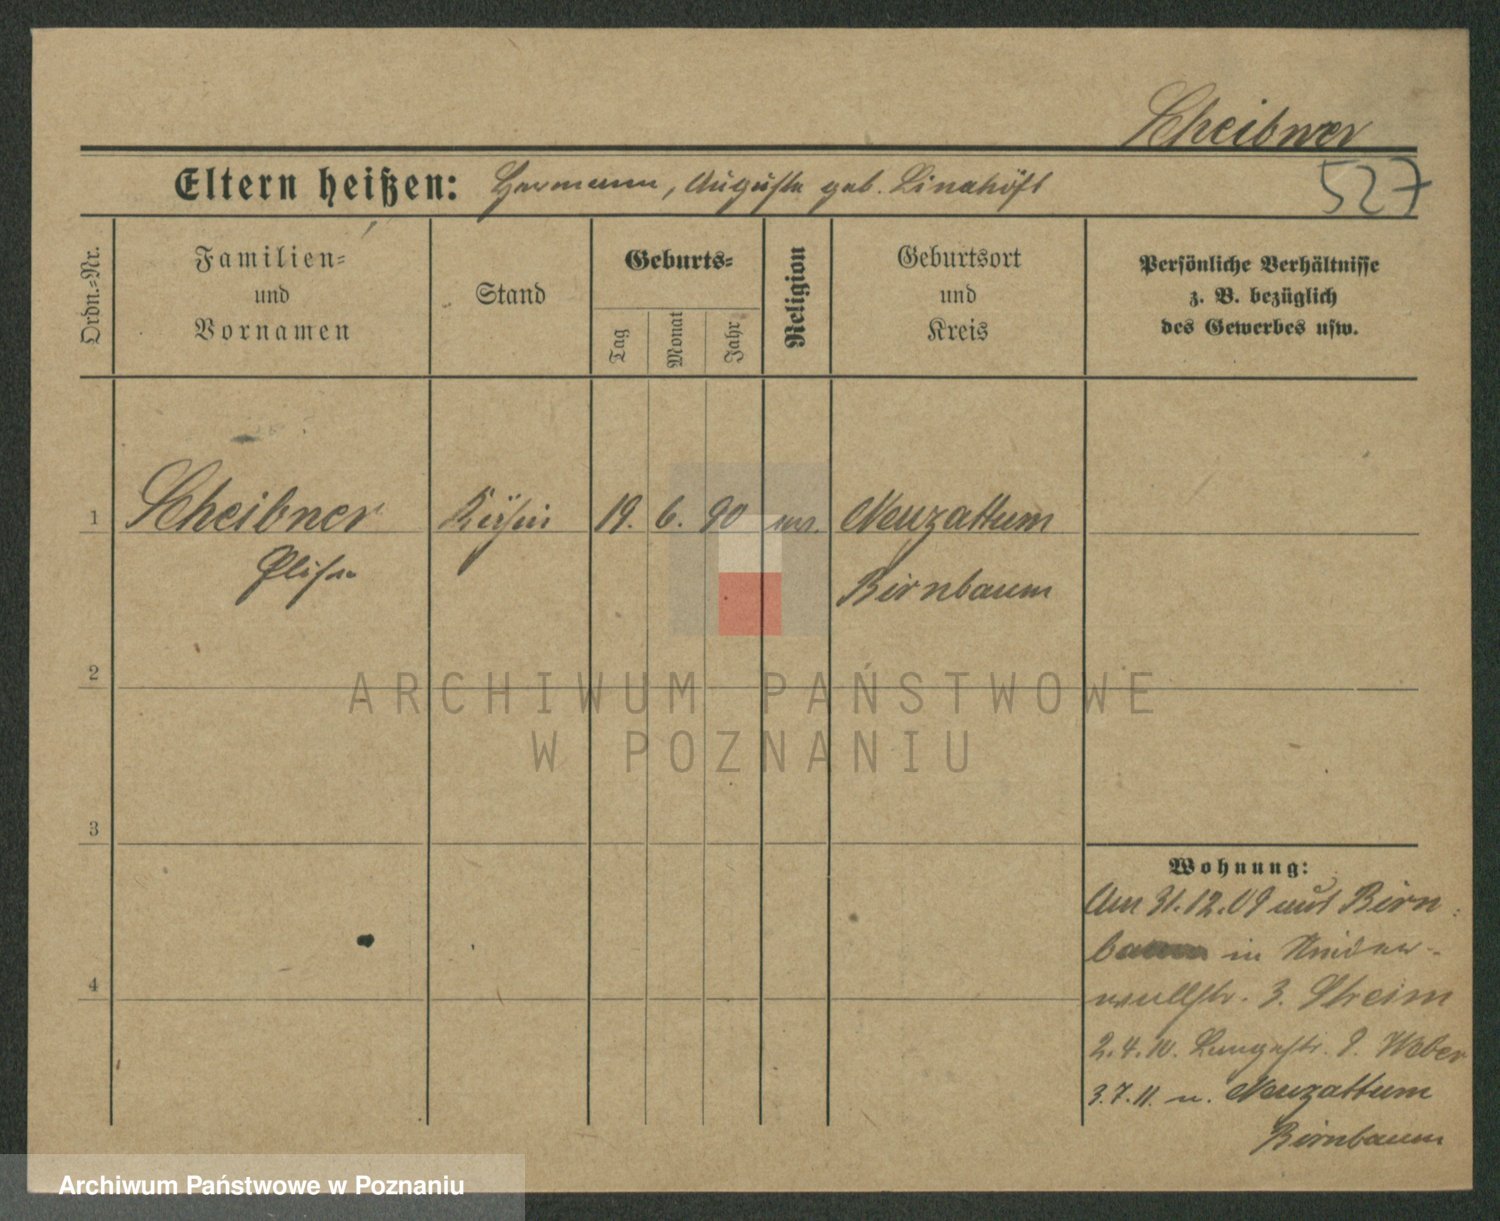 Scheibner
Eltern heißen: Hermann, Auguste geb.
527
Ordn.-Nr.
Familien-
und
Vornamen
Stand
Geburts-
Tag
Monat
Jahr
Religion
Geburtsort
und
Kreis
Persönliche Verhältnisse
z. B. bezüglich
des Gewerbes usw.
1 Scheibner 19. 6. 90 ev. Neuzattum
Elise Birnbaum
2
3
4
Wohnung:
Am 31.12.09 aus Birn-
baum in Nieder-
wallstr. 3. Streim
2.4.10. Langestr. 8. Weber
3.7.11. n. Neuzattum
Birnbaum
ARCHIWUM PAŃSTWOWE
W POZNANIU
Archiwum Państwowe w Poznaniu